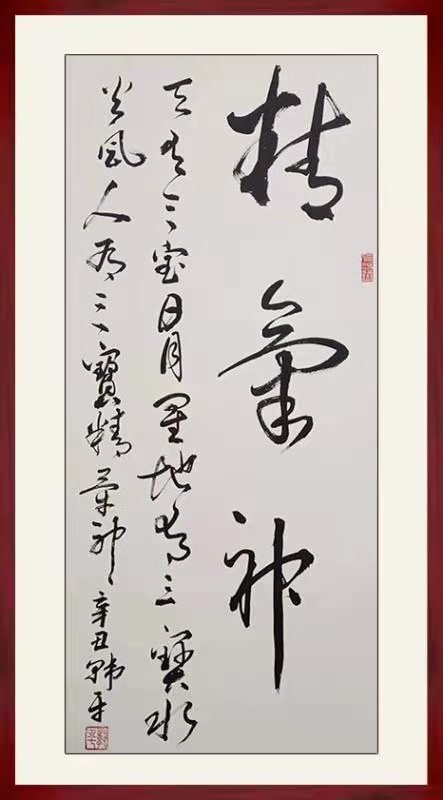 精氣神
天有三宝日月星地有三寶水
火風人有三寶精氣神辛丑韩平